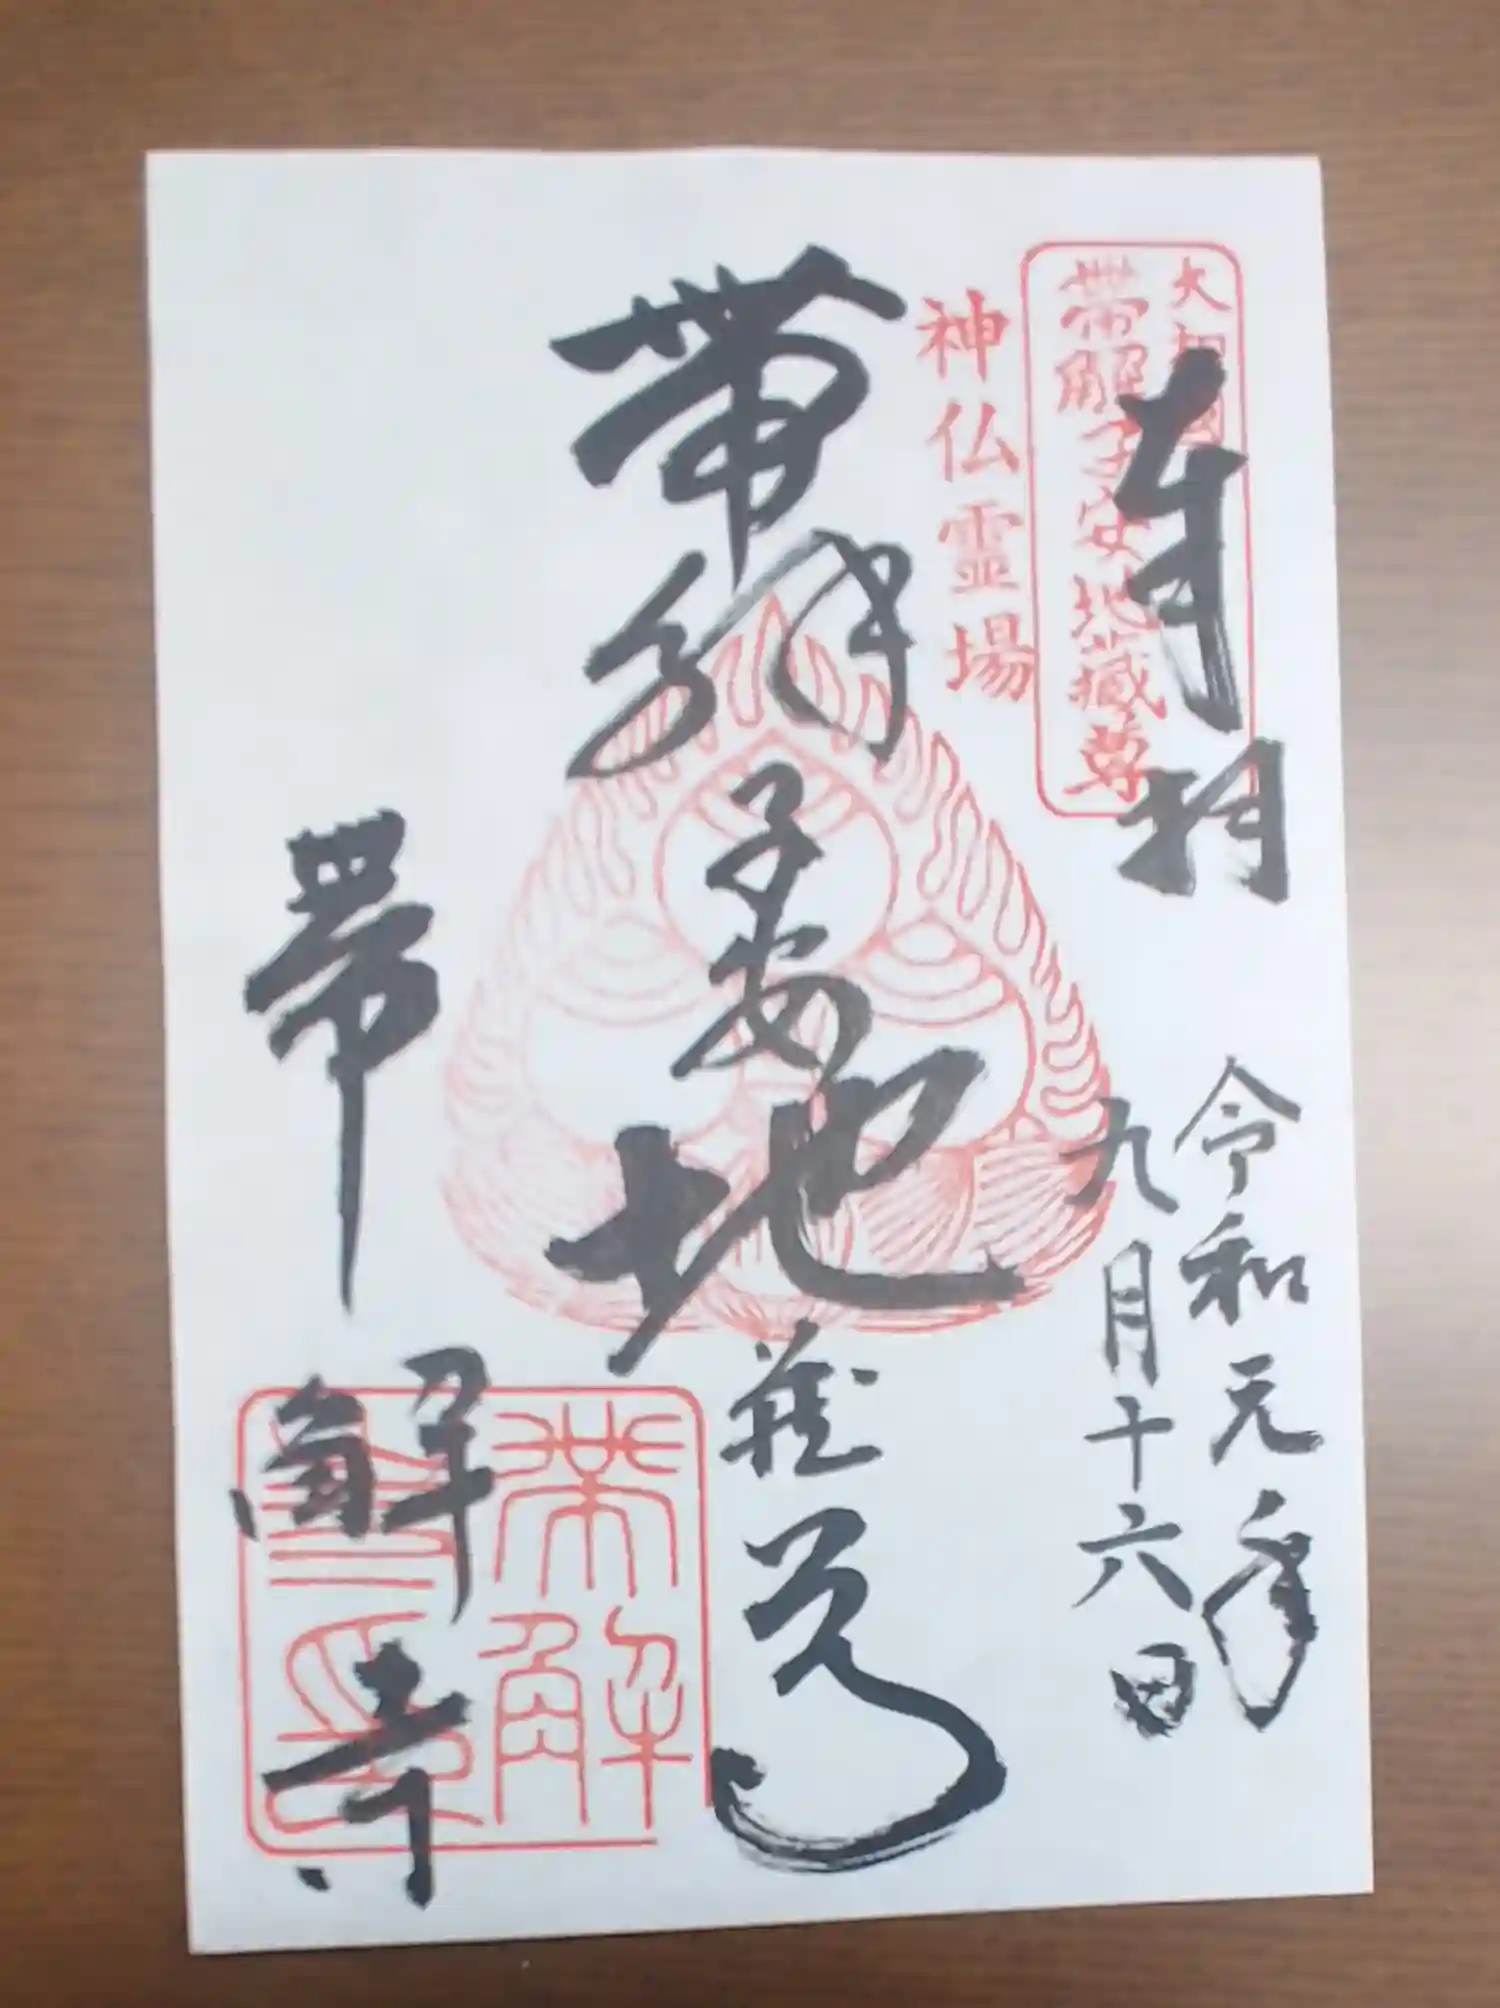 奉拝
令和元年
九月十六日
大和国
帯解子安地蔵尊
神仏霊場
帯解子安地蔵尊
帯解寺
帯解
寺印